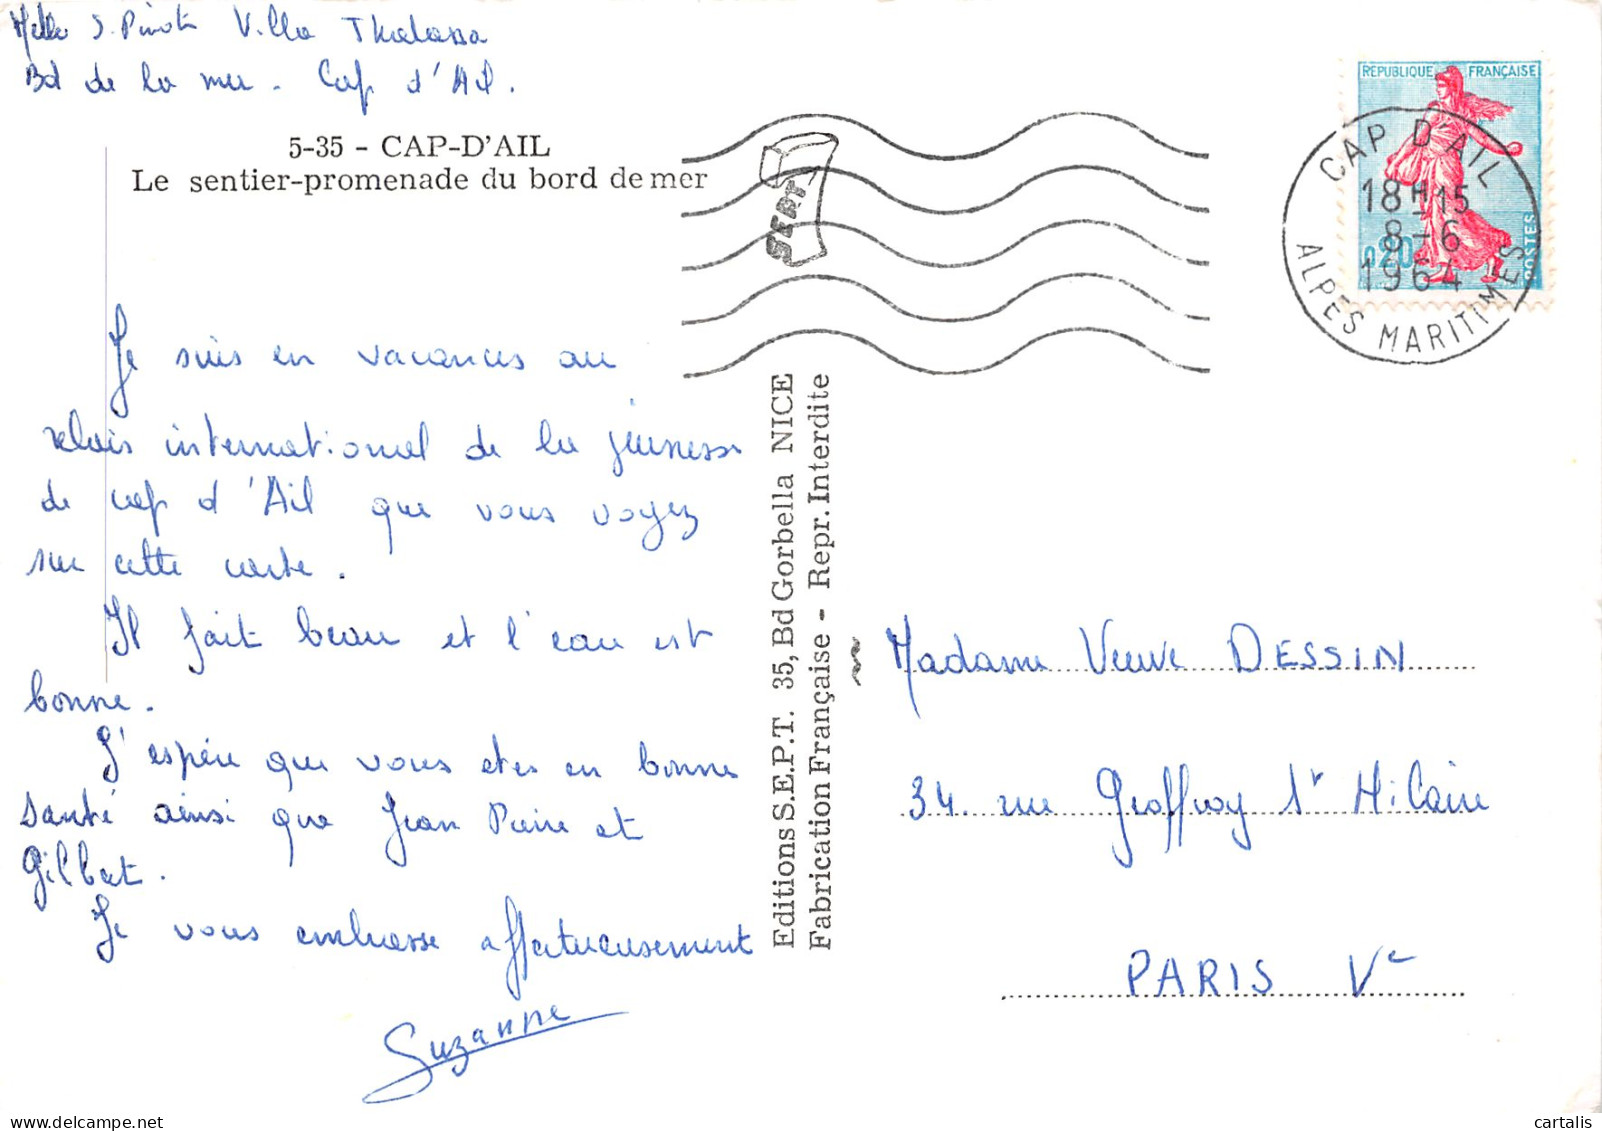 Melle S. Pinot Villa Thalassa
Bd de la mer - Cap d'Ail.
5-35 - CAP-D'AIL
Le sentier-promenade du bord de mer
SEPT
REPUBLIQUE FRANÇAISE
0,20
POSTES
CAP D'AIL
18H-15
8-6
1964
ALPES MARITIMES
Je suis en vacances au
relais international de la jeunesse
de cap d'Ail que vous voyez
sur cette carte.
Il fait beau et l'eau est
bonne.
J'espère que vous etes en bonne
santé ainsi que Jean Pierre et
Gilbert.
Je vous embrasse affectueusement
Suzanne
Editions S.E.P.T. 35, Bd Gorbella NICE
Fabrication Française - Repr. Interdite
Madame Veuve DESSIN
34. rue Geoffroy St Hilaire
PARIS Ve
cartalis